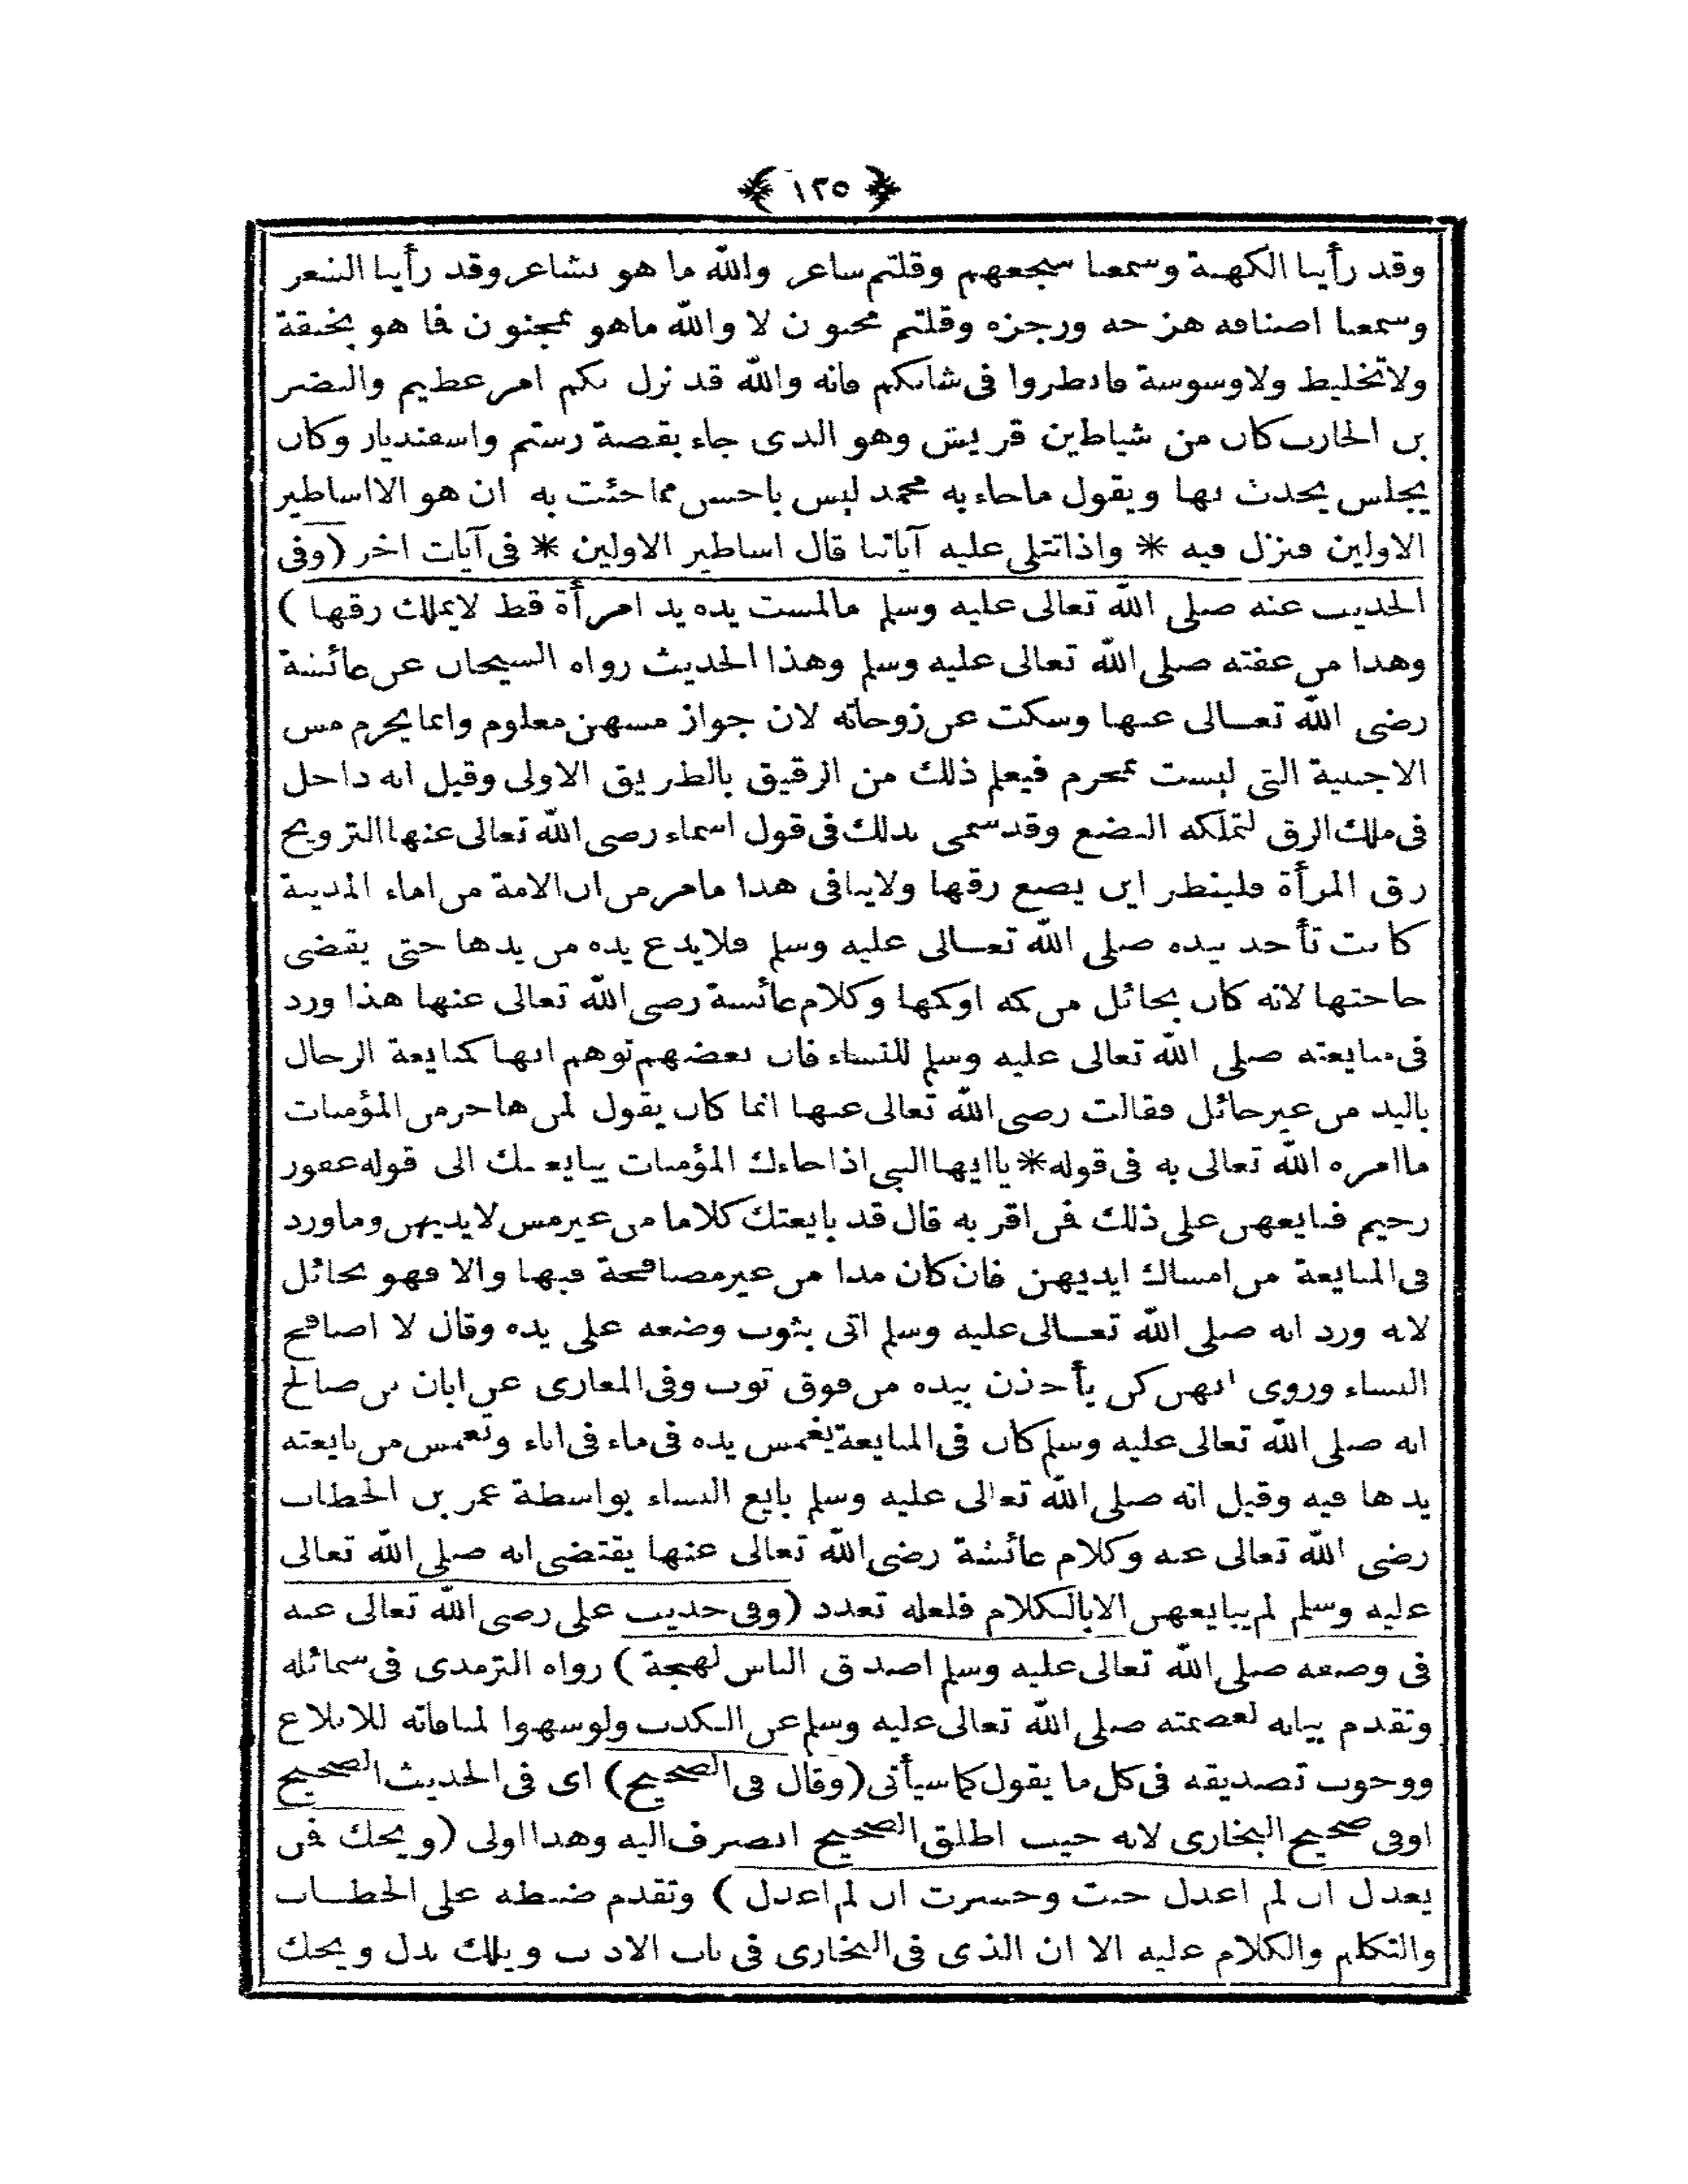 ﴿ ١٢٥ ﴾
وقد رأينا الكهنة وسمعنا سجعهم وقلتم ساعر والله ما هو بشاعر وقد رأينا الشعر
وسمعنا اصنافه هزجه ورجزه وقلتم مجنون لا والله ماهو بمجنون فا هو بخنقة
ولاتخليط ولاوسوسة فانظروا فى شانكم فانه والله قد نزل بكم امر عظيم والنضر
بن الحارث كان من شياطين قريش وهو الذى جاء بقصة رستم واسفنديار وكان
يجلس يحدث بها ويقول ماجاء به محمد ليس باحسن مما جئت به ان هو الااساطير
الاولين فنزل فيه * واذاتتلى عليه آياتنا قال اساطير الاولين * فى آيات اخر (وفى
الحديث عنه صلى الله تعالى عليه وسلم مالمست يده يد امرأة قط لايملك رقها)
وهذا من عفته صلى الله تعالى عليه وسلم وهذا الحديث رواه الشيخان عن عائشة
رضى الله تعالى عنها وسكت عن زوجاته لان جواز مسهن معلوم وانما يحرم مس
الاجنبية التى ليست بمحرم فيعلم ذلك من الرقيق بالطريق الاولى وقيل انه داخل
فى ملك الرق لتملكه البضع وقد سمى بذلك فى قول اسماء رضى الله تعالى عنها التزويج
رق المرأة فلينظر اين يضع رقها ولاينافى هذا مامر من ان الامة من اماء المدينة
كانت تأخذ بيده صلى الله تعالى عليه وسلم فلايدع يده من يدها حتى يقضى
حاجتها لانه كان بحائل من كمه اوكمها وكلام عائشة رضى الله تعالى عنها هذا ورد
فى مبايعته صلى الله تعالى عليه وسلم للنساء فان بعضهم توهم انها كمبايعة الرجال
باليد من غير حائل فقالت رضى الله تعالى عنها انما كان يقول لمن هاجر من المؤمنات
ماامره الله تعالى به فى قوله * ياايها النبى اذا جاءك المؤمنات يبايعنك الى قوله غفور
رحيم فبايعهن على ذلك فن اقر به قال قد بايعتك كلاما من غير مس لايديهن وماورد
فى المبايعة من امساك ايديهن فان كان مدا من غير مصافحة فبها والا فهو بحائل
لانه ورد انه صلى الله تعالى عليه وسلم اتى بثوب وضعه على يده وقال لا اصافح
النساء وروى انهن كن يأخذن بيده من فوق ثوب وفى المغازى عن ابان بن صالح
انه صلى الله تعالى عليه وسلم كان فى المبايعة يغمس يده فى ماء فى اناء وتغمس من بايعته
يدها فيه وقيل انه صلى الله تعالى عليه وسلم بايع النساء بواسطة عمر بن الخطاب
رضى الله تعالى عنه وكلام عائشة رضى الله تعالى عنها يقتضى انه صلى الله تعالى
عليه وسلم لم يبايعهن الابالكلام فلعله تعدد (وفى حديث على رضى الله تعالى عنه
فى وصفه صلى الله تعالى عليه وسلم اصدق الناس لهجة) رواه الترمذى فى شمائله
وتقدم بيانه لعصمته صلى الله تعالى عليه وسلم عن الكذب ولوسهوا لمنافاته للابلاغ
ووجوب تصديقه فى كل ما يقول كما سيأتى (وقال فى الصحيح) اى فى الحديث الصحيح
اوفى صحيح البخارى لانه حيث اطلق الصحيح انصرف اليه وهذا اولى (ويحك فن
يعدل ان لم اعدل خبت وخسرت ان لم اعدل) وتقدم ضبطه على الخطاب
والتكلم والكلام عليه الا ان الذى فى البخارى فى باب الادب ويلك بدل ويحك